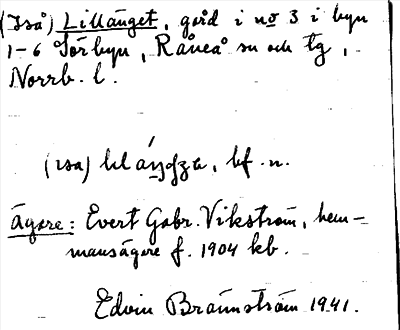 (Iså) Lillänget, gård i no 3 i byn
1-6 Sörbyn, Råneå sn och tg,
Norrb. l.
ägare: Evert Gabr. Vikström, hem-
mansägare f. 1904 kb.
Edvin Brännström 1941.